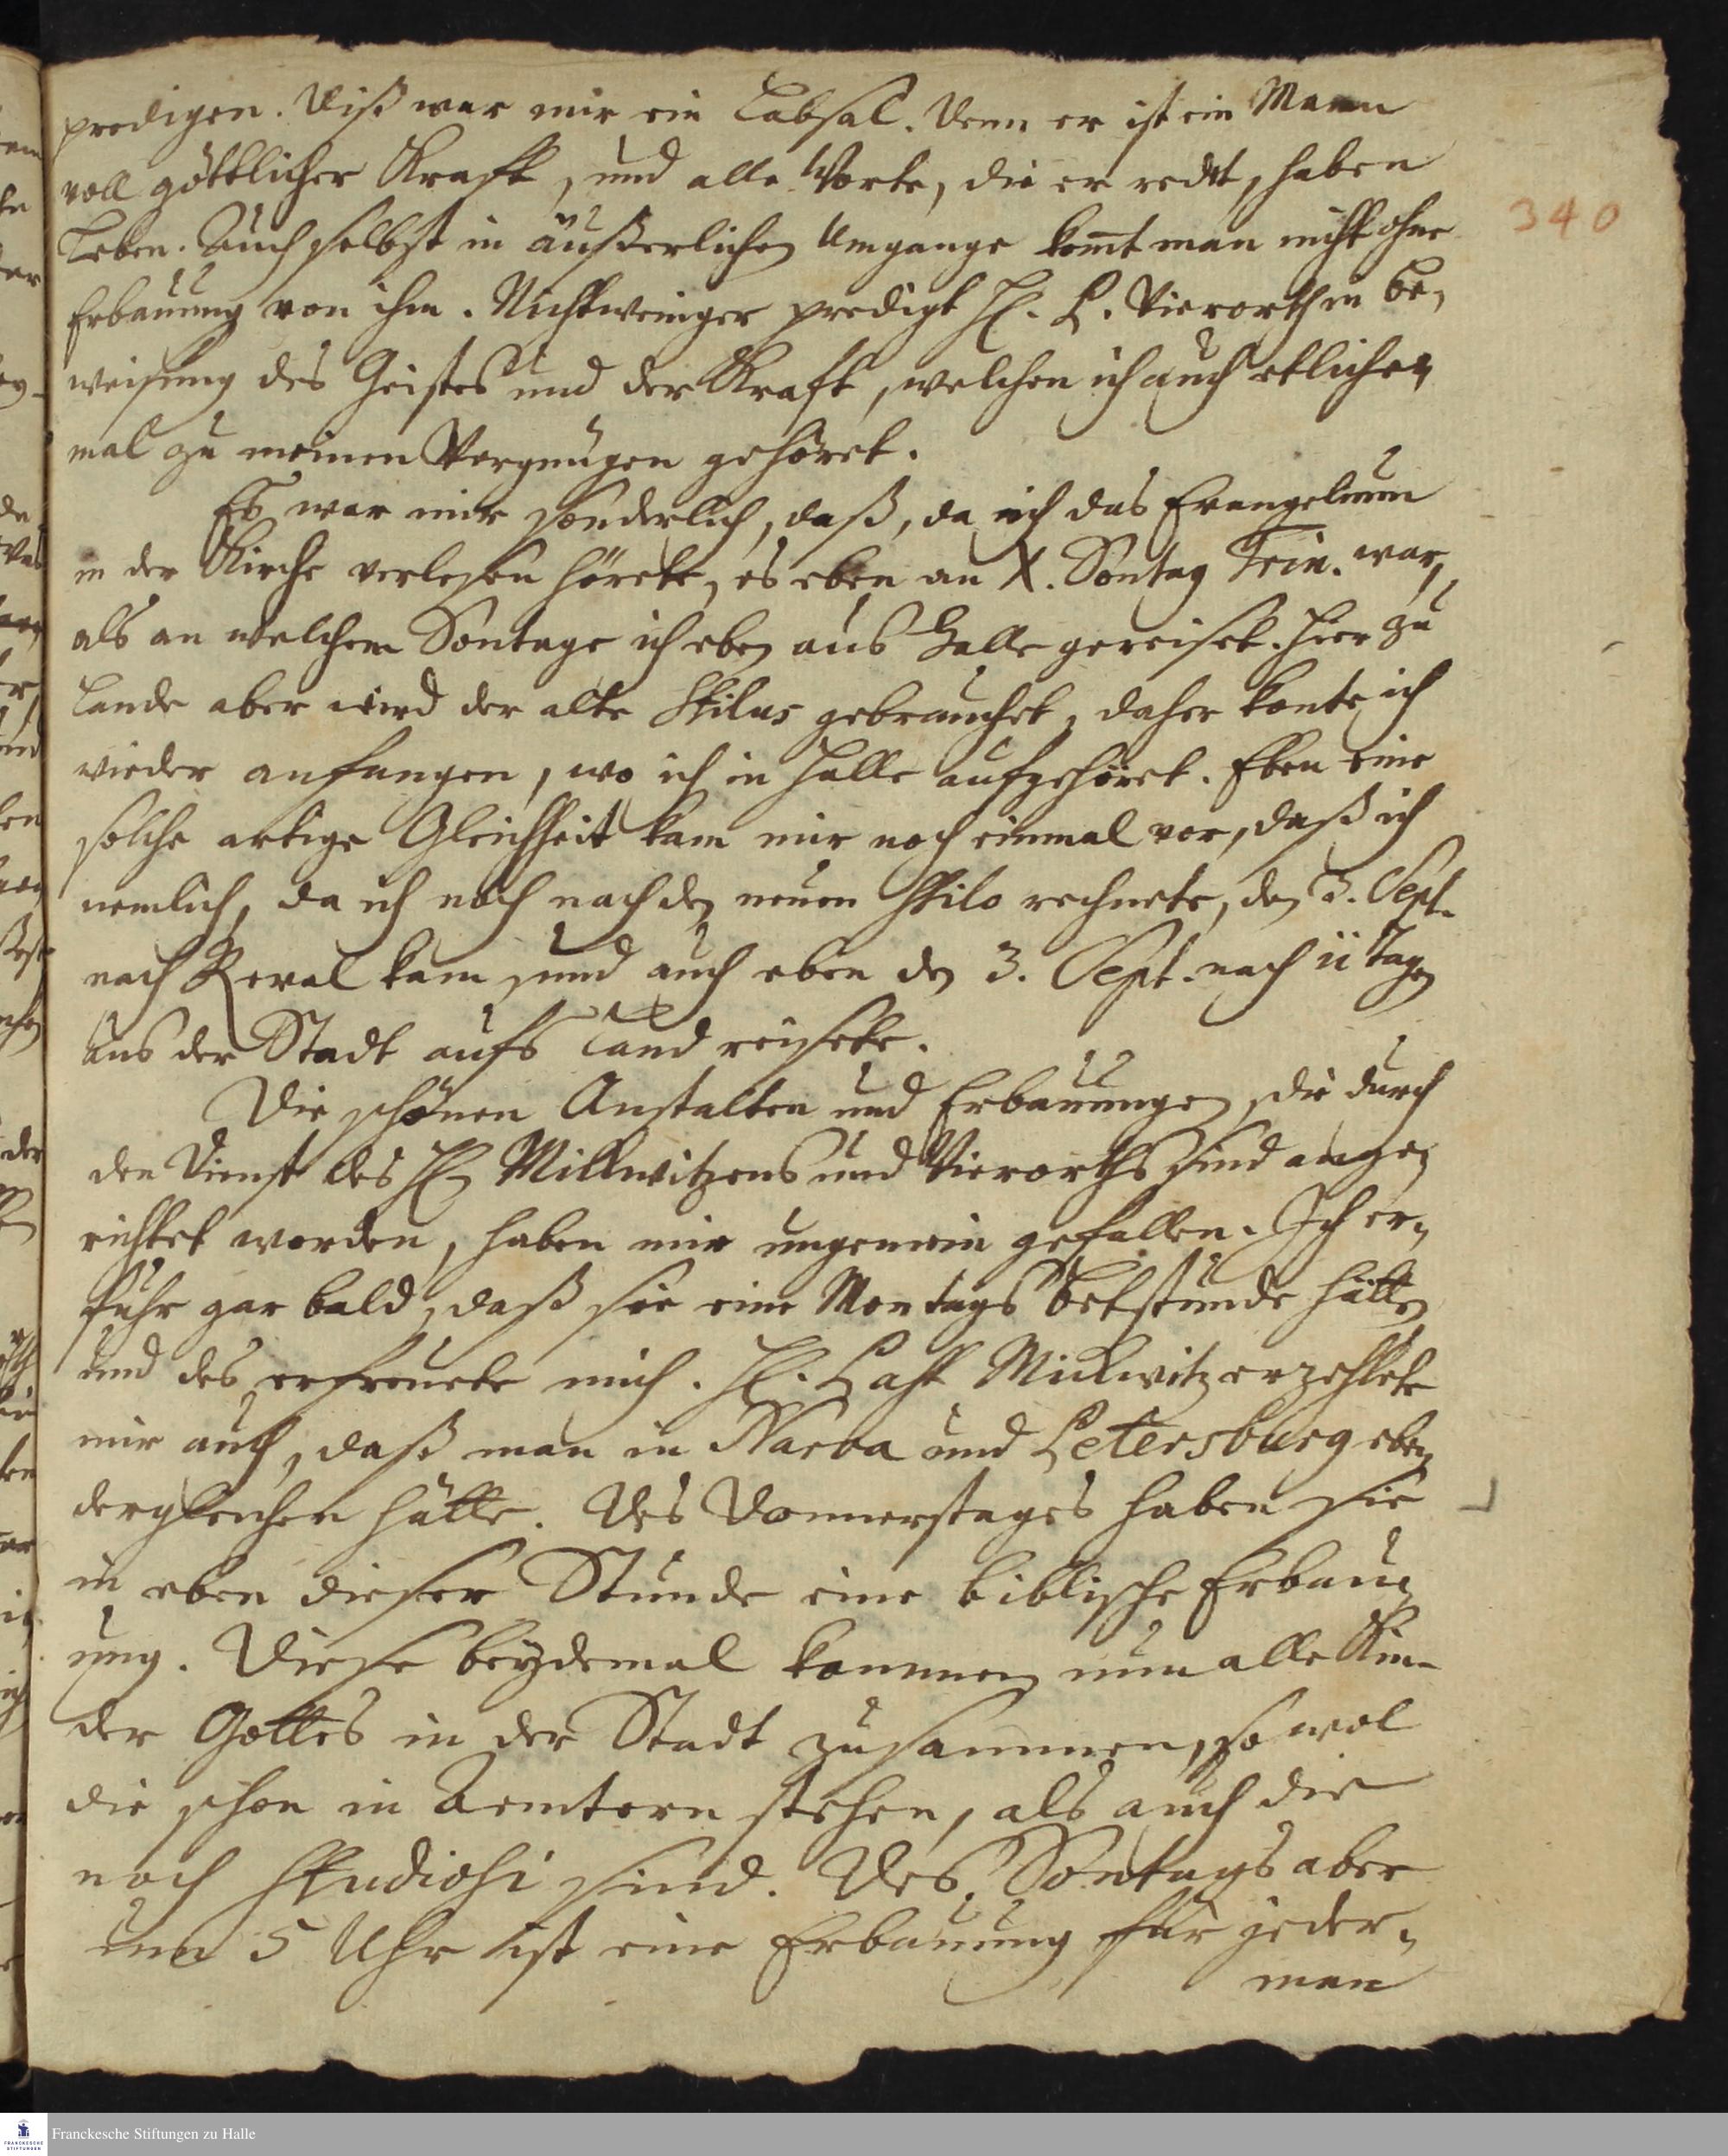 predigen. Diß war mir ein Labsal. Denn er ist ein Mann
voll göttlicher Krafft, und alle Worte, die er redet, haben
Leben. Auch selbst in äußerlichen Umgange komt man nicht ohne
Erbauung von ihm. Nicht weniger predigt H. P. Vieroth in be-
weisung des Geistes und der Kraft, welchen ich auch etliche
mal zu meinen Vergnügen gehöret.
Es war mir sonderlich, daß, da ich das Evangelium
in der Kirche verlesen hörete, es eben an X. Sontag Trin. war,
als an welchem Sontage ich eben aus Halle gereiset. Hier zu
Lande aber wird der alte Stilus gebrauchet, daher konte ich
wieder anfangen, wo ich in Halle aufgehöret. Eben eine
solche artige Gleichheit kam mir noch einmal vor, daß ich
nemlich, da ich noch nach den neuen Stilo rechnete, den 3. Sept.
nach Reval kam, und auch eben den 3. Sept. nach 11 Tagen
aus der Stadt aufs Land reisete.
Die schönen Anstalten und Erbauungen, die durch
den Dienst des H. Mickwitzens und Vieroths sind ange-
richtet worden, haben mir ungemein gefallen. Ich er-
fuhr gar bald, daß sie eine Montags Betstunde hätten
und das erfreuete mich. H. Past Mickwitz erzehlete
mir auch, daß man in Narva und Petersburg eben
dergleichen hätte. Des Donnerstages haben sie
in eben dieser Stunde eine biblische Erbau-
ung. Diese beydemal kommen nun alle Kin-
der Gottes in der Stadt zusammen, so wol
die schon in Aemtern stehen, als auch die
noch Studiosi sind. Des Sontags aber
um 5 Uhr ist eine Erbauung für jeder-
man
340
Franckesche Stiftungen zu Halle